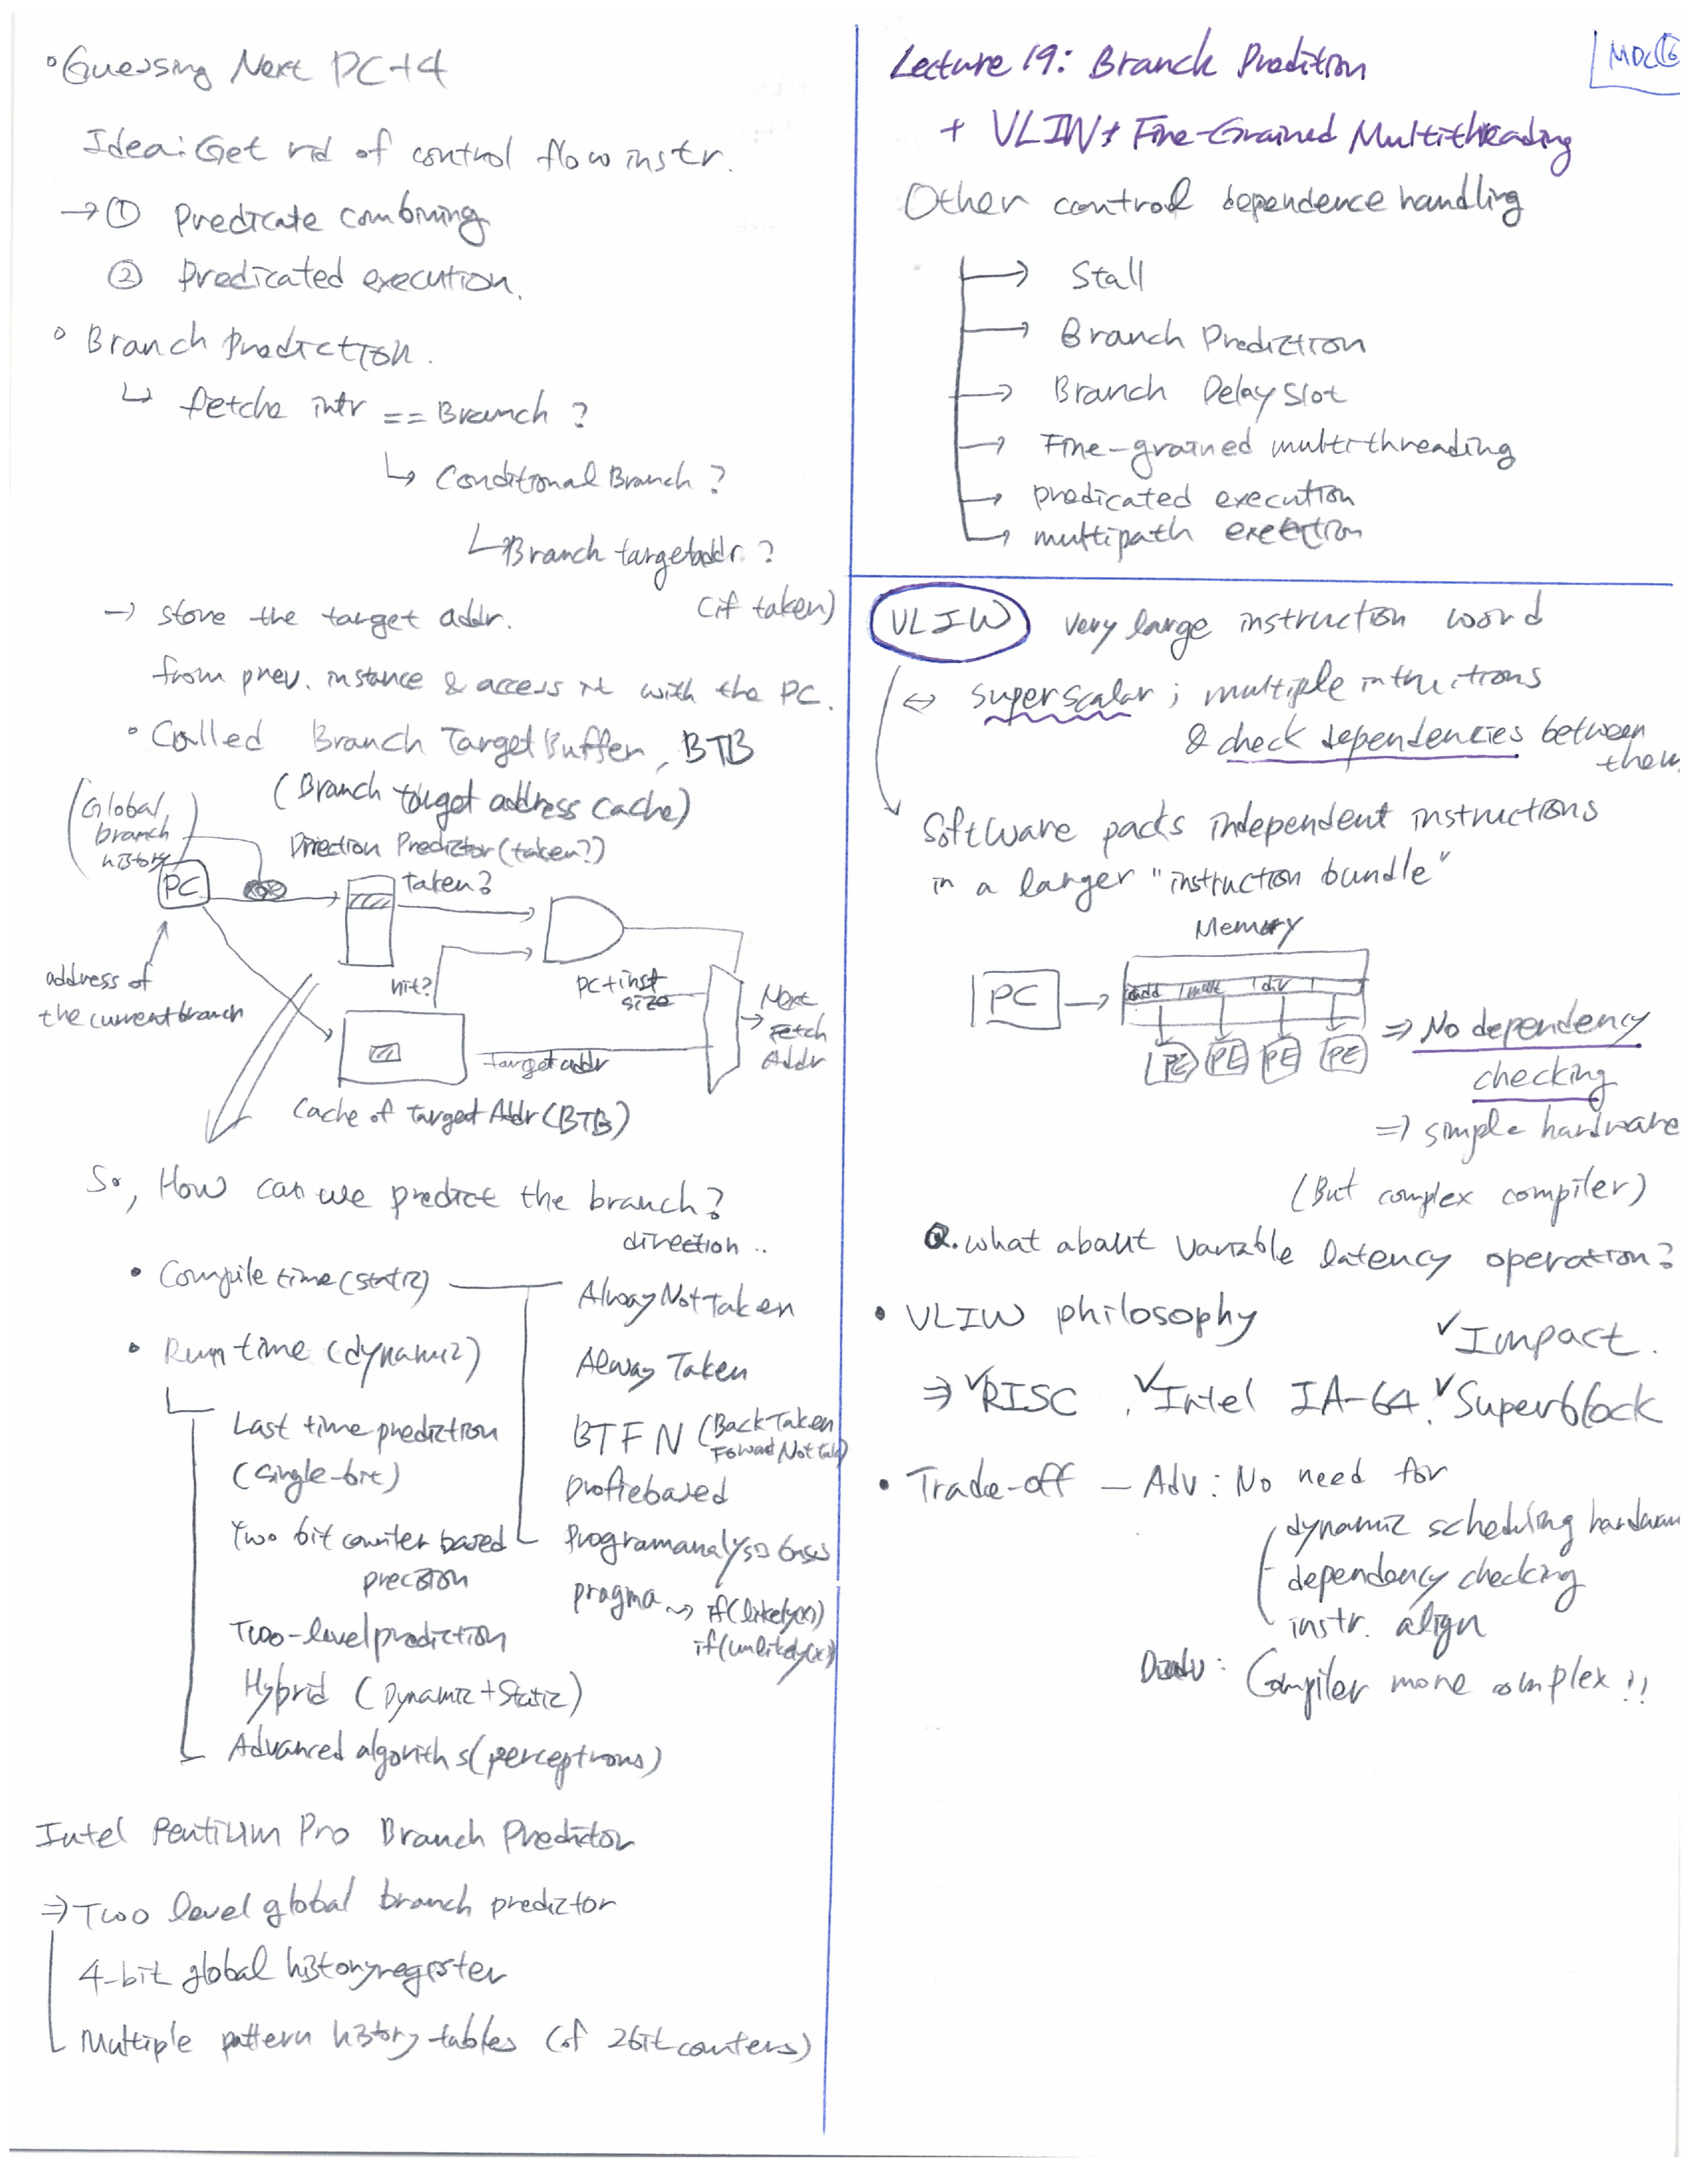 ° Guessing Next PC+4
Idea: Get rid of control flow instr.
→ ① Predicate combining
② Predicated execution.
° Branch Prediction.
↳ fetche intr == Branch ?
↳ Conditional Branch ?
↳ Branch target addr. ?
(if taken)
→ store the target addr.
from prev. instance & access it with the PC.
° Called Branch Target Buffer, BTB
(Branch target address cache)
(Global
branch
history)
Direction Predictor (taken?)
PC
taken?
address of
the current branch
hit?
PC+inst
size
Next
Fetch
Addr
target addr
Cache of target Addr (BTB)
So, How can we predict the branch?
direction ..
• Compile time (static)
Alway Not Taken
• Run time (dynamic)
Alway Taken
Last time prediction
(single-bit)
BTFN (Back Taken
Foward Not tak)
profiebased
Two bit counter based
Program analysis
pragma → if(likely(x))
if(unlikely(x))
Two-level prediction
Hybrid (Dynamic + Static)
Advanced algorith s (perceptrons)
Intel Pentium Pro Branch Predictor
⇒ Two level global branch predictor
4-bit global history register
Multiple pattern history tables (of 2bit counters)
Lecture 19: Branch Predition
+ VLIW + Fine-Grained Multithreading
Other control dependence handling
→ Stall
→ Branch Prediction
→ Branch Delay Slot
→ Fine-grained multithreading
→ predicated execution
→ multipath
VLIW very large instruction word
⇔ superscalar ; multiple
& check dependencies between
them.
Software packs independent instructions
in a larger "instruction bundle"
Memory
PC →
add
mult
div
PE PE PE PE
⇒ No dependency
checking
⇒ simple hardware
(But complex compiler)
Q. what about variable latency operation?
• VLIW philosophy
✓ Impact.
⇒ ✓RISC, ✓Intel IA-64, ✓Superblock
• Trade-off — Adv : No need for
dynamic scheduling
dependency checking
instr. align
Compiler more complex !!